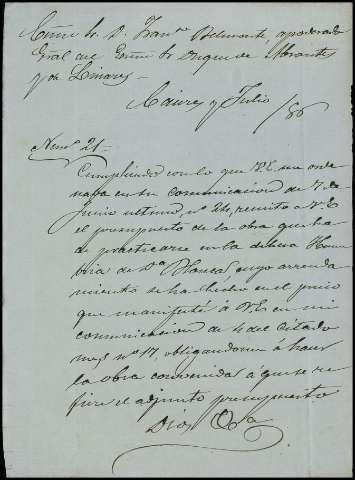 Exmo Sr. D. Franco Belmonte, apoderado
Gral del Exmo Sr Duque de Abrantes
y de Linares—
Caceres y Julio /86
Numo 21—
Cumpliendo con lo que V.E. me orde
naba en su comunicacion de 7 de
Junio ultimo, nº 24, remito a V.E
el presupuesto de la obra que ha
de practicarse en la dehesa
de Da Blanca, cuyo arrenda
miento se ha hecho en el precio
que manifesté á V.E en mi
comunicacion de 4 del citado
mes nº 17, obligandome á hacer
la obra convenida á que se re
fiere el adjunto presupuesto
Dios Ga